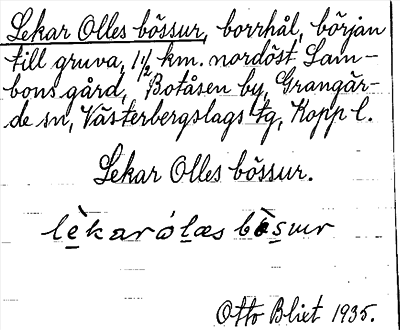 Lekar Olles bössur, borrhål, början
till gruva, 1 1/2 km. nordöst Lam-
bons gård, Botåsen by, Grangär-
de sn, Västerbergslags tg, Kopp l.
Lekar Olles bössur.
Otto Blixt 1935.